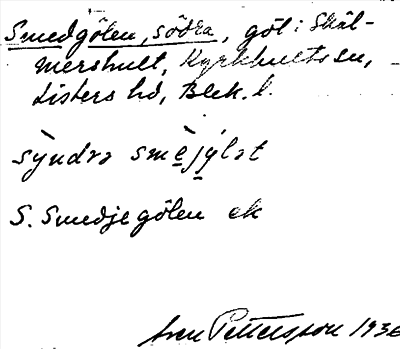 Smedgölen, södra, göl i Skäl-
mershult, Kyrkhults sn,
Listers hd, Blek. l.
sỳndra smèjýlət
S. Smedjegölen ek
Sven Pettersson 1936